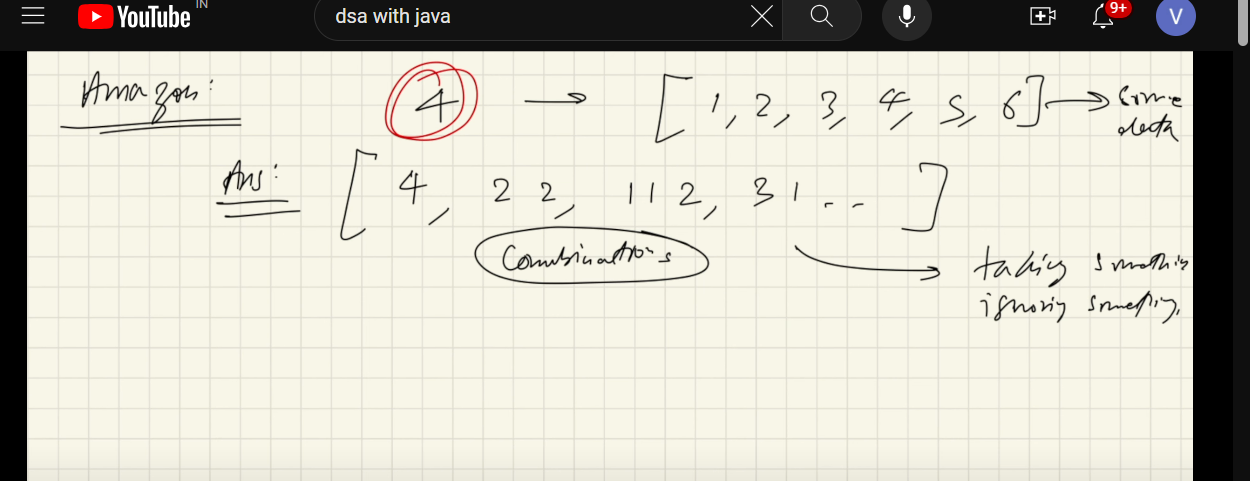 YouTube IN
dsa with java
9+
V
Amazon: 4 → [1, 2, 3, 4, 5, 6] → some data
Ans: [4, 2 2, 1 1 2, 3 1 - - ]
Combinations → taking
ignoring